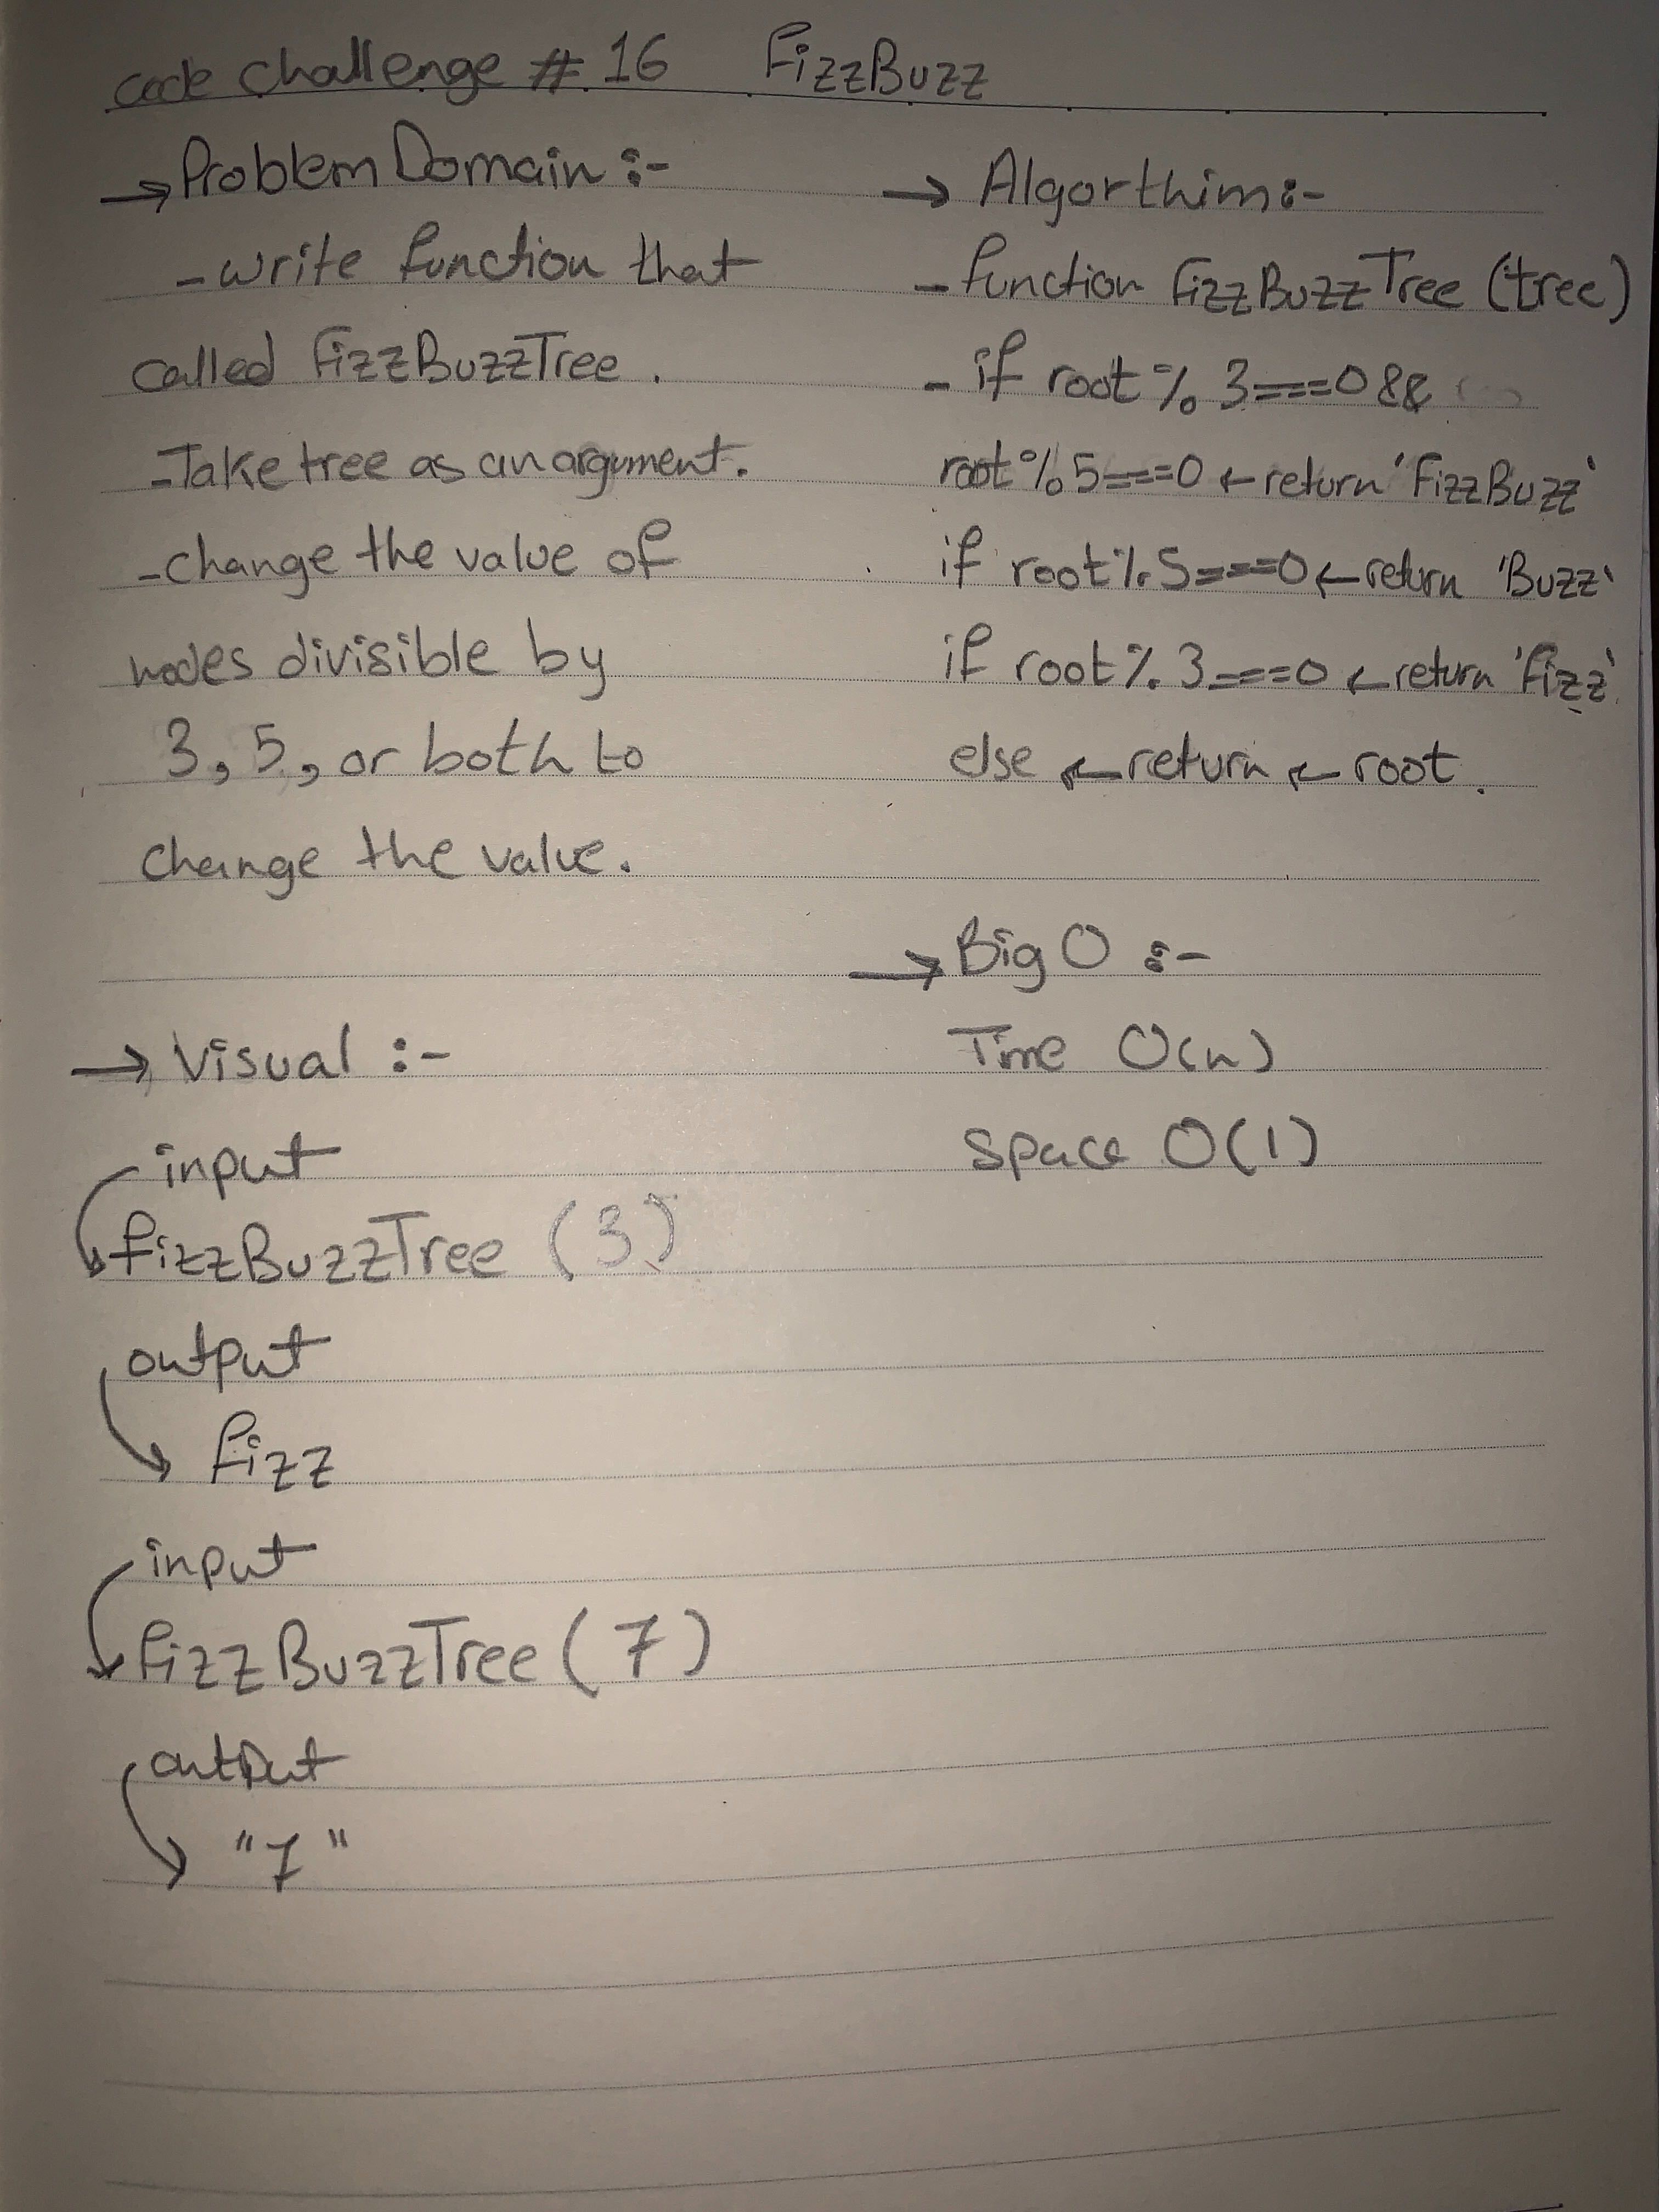 code challenge # 16 FizzBuzz
→ Problem Domain :-
- write function that
called FizzBuzzTree.
- Take tree as an argument.
- change the value of
nodes divisible by
3, 5, or both to
change the value.
→ Visual :-
input
fizzBuzzTree (3)
output
fizz
input
fizzBuzzTree (7)
output
"7"
→ Algorthim :-
- function FizzBuzzTree (tree)
- if root % 3===0 &&
root % 5===0 ← return 'FizzBuzz'
if root % 5===0 ← return 'Buzz'
if root % 3===0 ← return 'Fizz'
else ← return ← root.
→ Big O :-
Time O(n)
Space O(1)